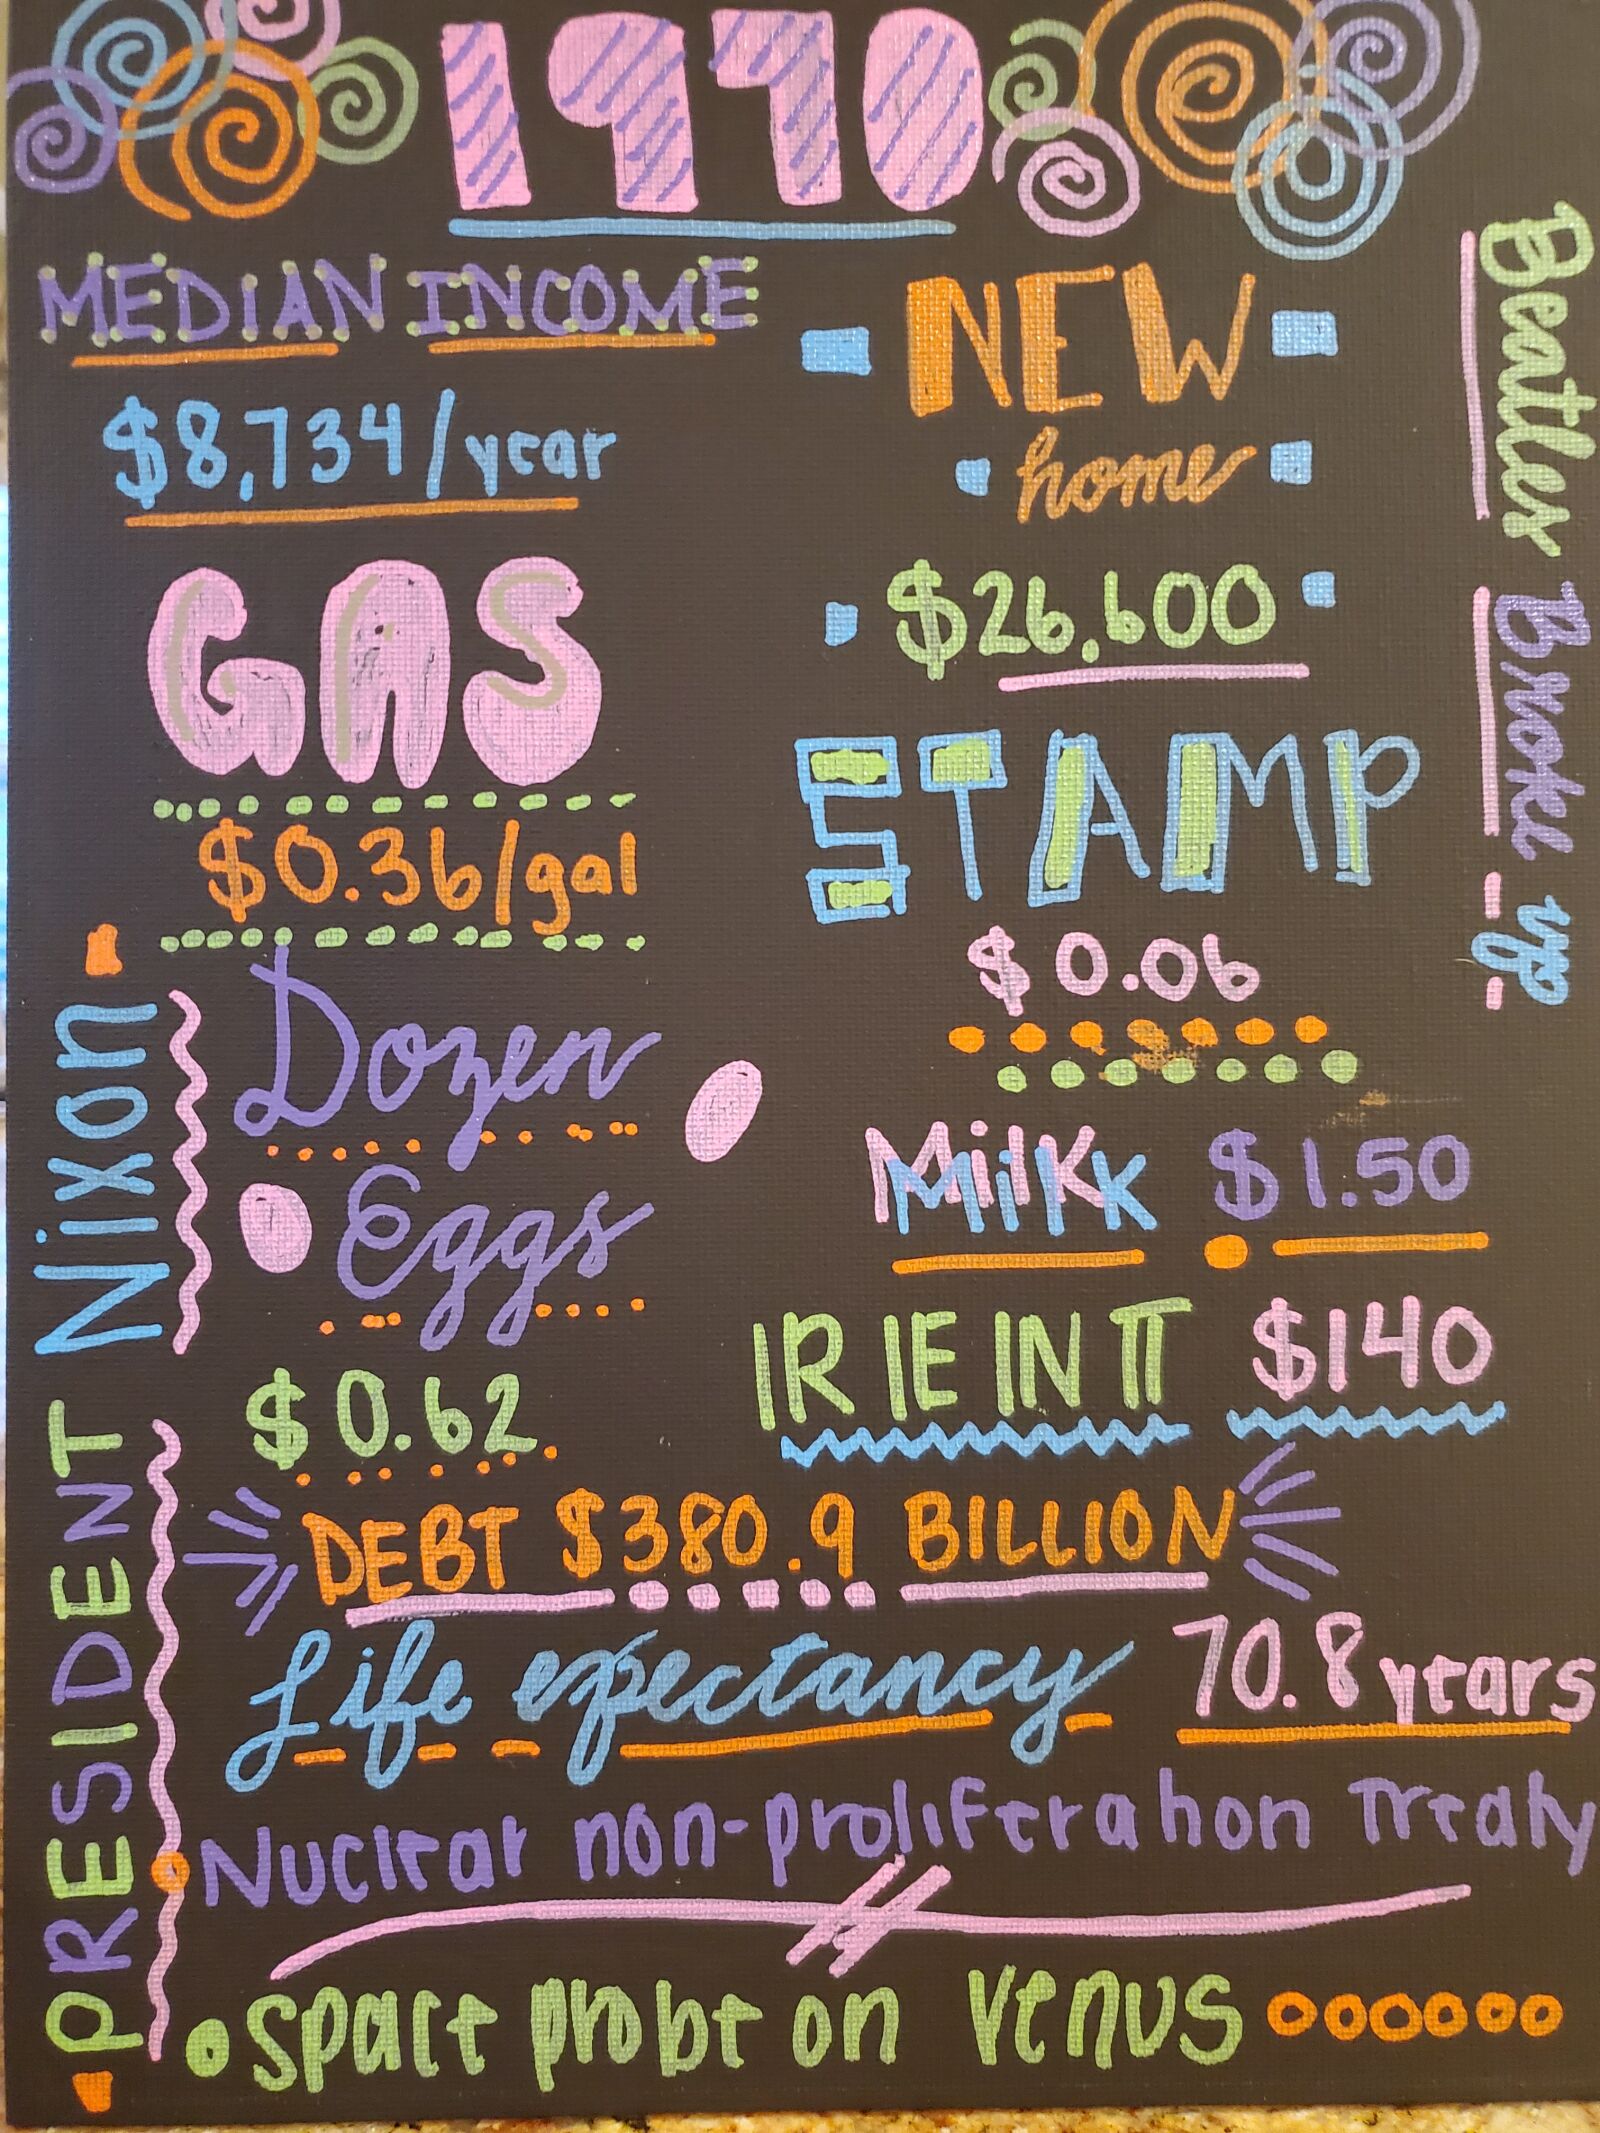 1970
MEDIAN INCOME
$8,734/year
GAS
$0.36/gal
Dozen
Eggs
$0.62
NEW
home
$26,600
STAMP
$0.06
Milk $1.50
RENT $140
DEBT $380.9 BILLION
Life expectancy 70.8 years
Nuclear non-proliferation Treaty
space probe on Venus
PRESIDENT Nixon
Beatles Broke up